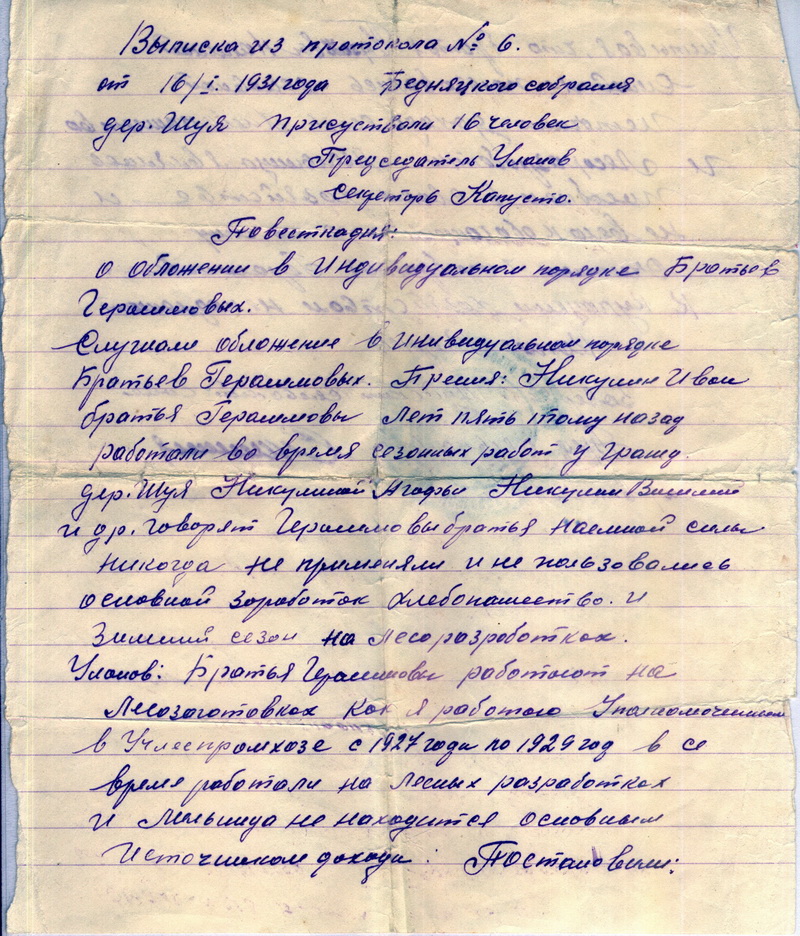 Выписка из протокола № 6.
от 16/I. 1931 года Бедняцкого собрания
дер. Шуя присуствали 16 человек
Председатель Уланов
Секретарь Капусто.
Повестка дня:
о обложении в Индивидуальном порядке Братьев
Герасимовых.
Слушали обложение в Инивидуальном порядке
Братьев Герасимовых. Прения: Никулин Иван
братья Герасимовы лет пять тому назад
работали во время сезонных работ у гражд.
дер. Шуя Никулиной Агафьи Никулин Василий
и др. говорят Герасимовы братья наемной силы
никогда не применяли и не пользовались
основной зароботок хлебопашество. и
Зимний сезон на Лесоразроботках.
Уланов: Братья Герасимовы работают на
Лесозаготовках как я работаю Уполномоченным
в Учлеспромхозе с 1927 года по 1929 год в се
время работали на Лесных разработках
и Мельница не находится основным
Источником дохода: Постановили: